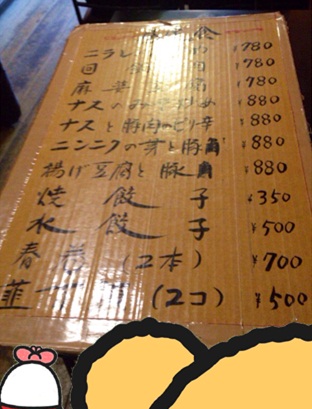 ニラと ¥780
回 肉 ¥780
麻婆 腐 ¥780
ナスのみそ炒め ¥880
ナスと豚肉のピリ辛 ¥880
ニンニクの芽と豚角 ¥880
揚げ豆腐と豚角 ¥880
焼餃子 ¥350
水餃子 ¥500
春巻(2本) ¥700
韮 (2コ) ¥500